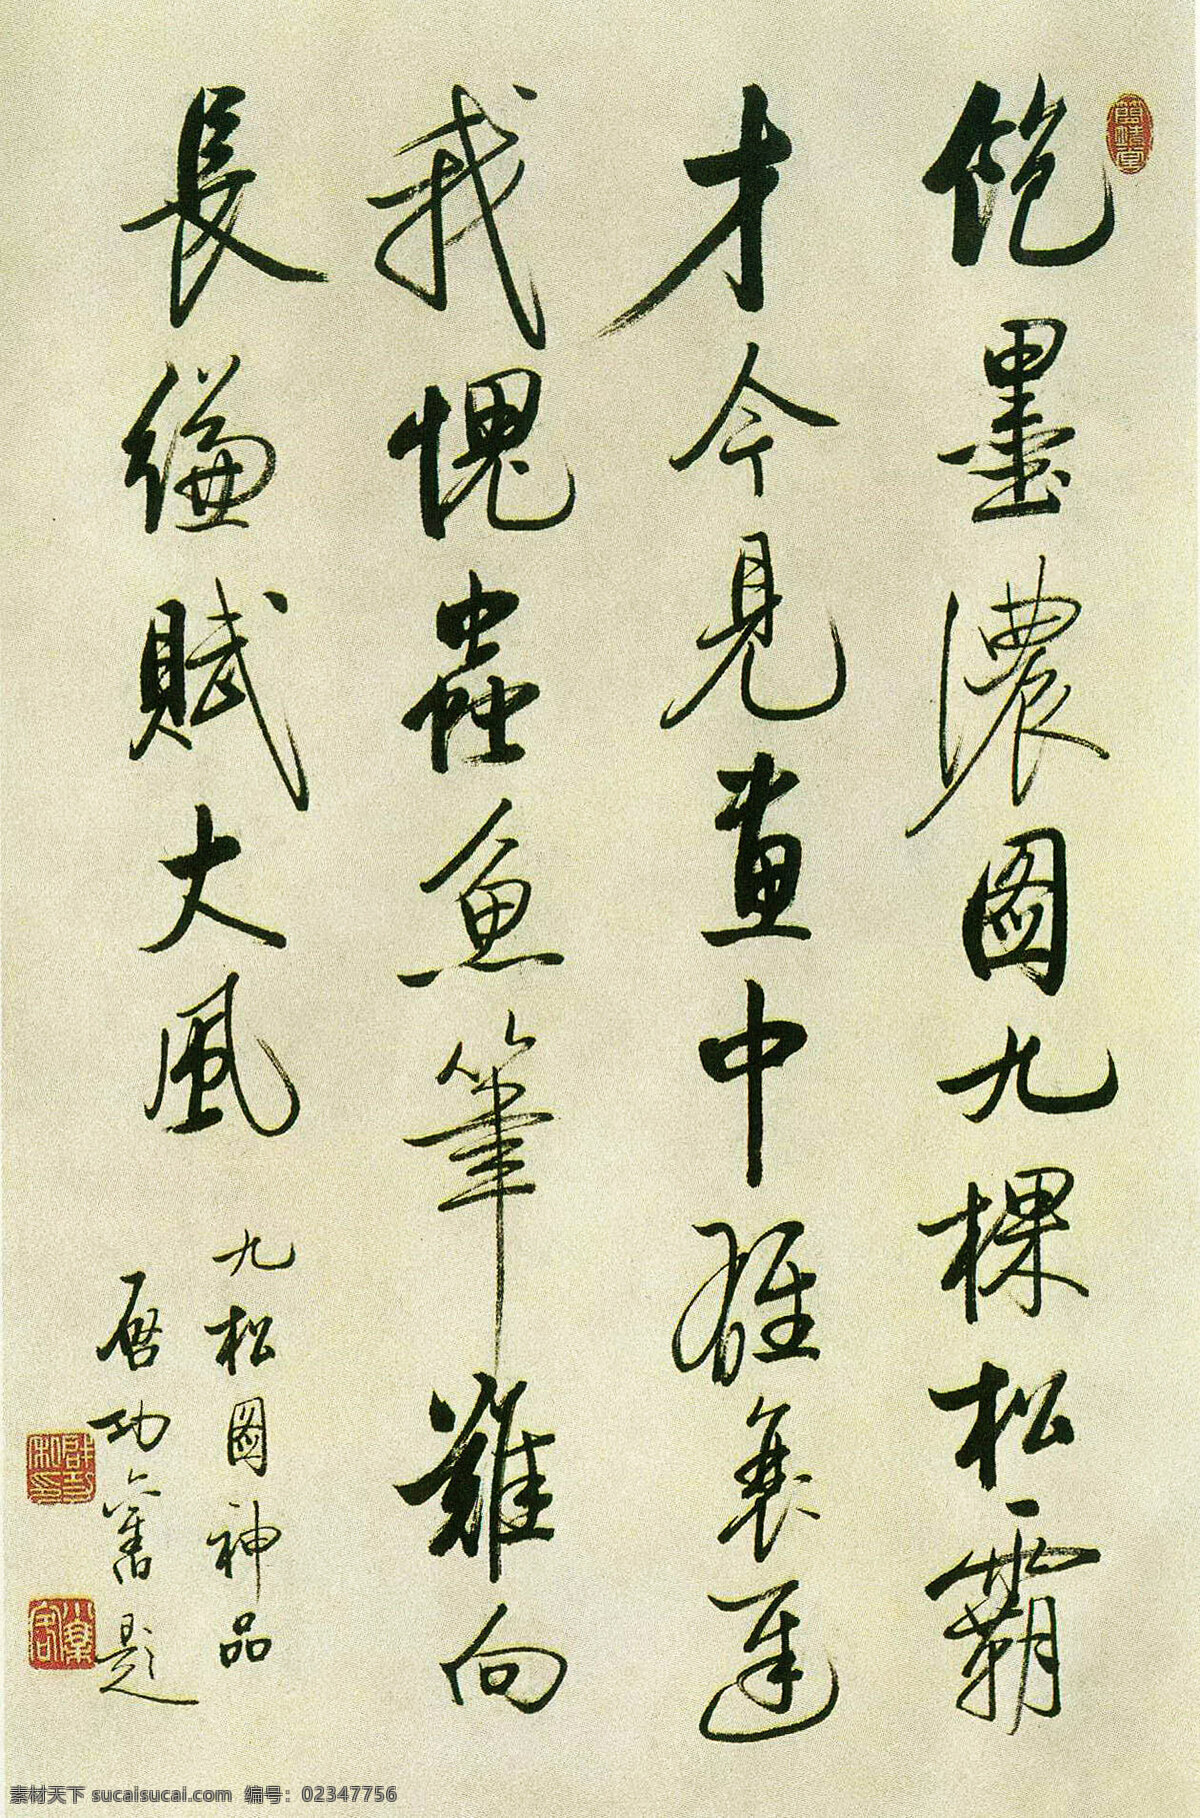 飽墨濃圖九棵松霸
才今見畫中雄衰遲
我愧蟲魚筆難向
長縑賦大風
九松圖神品
启功舊題
素材天下 sucaisucai.com 编号：02347756